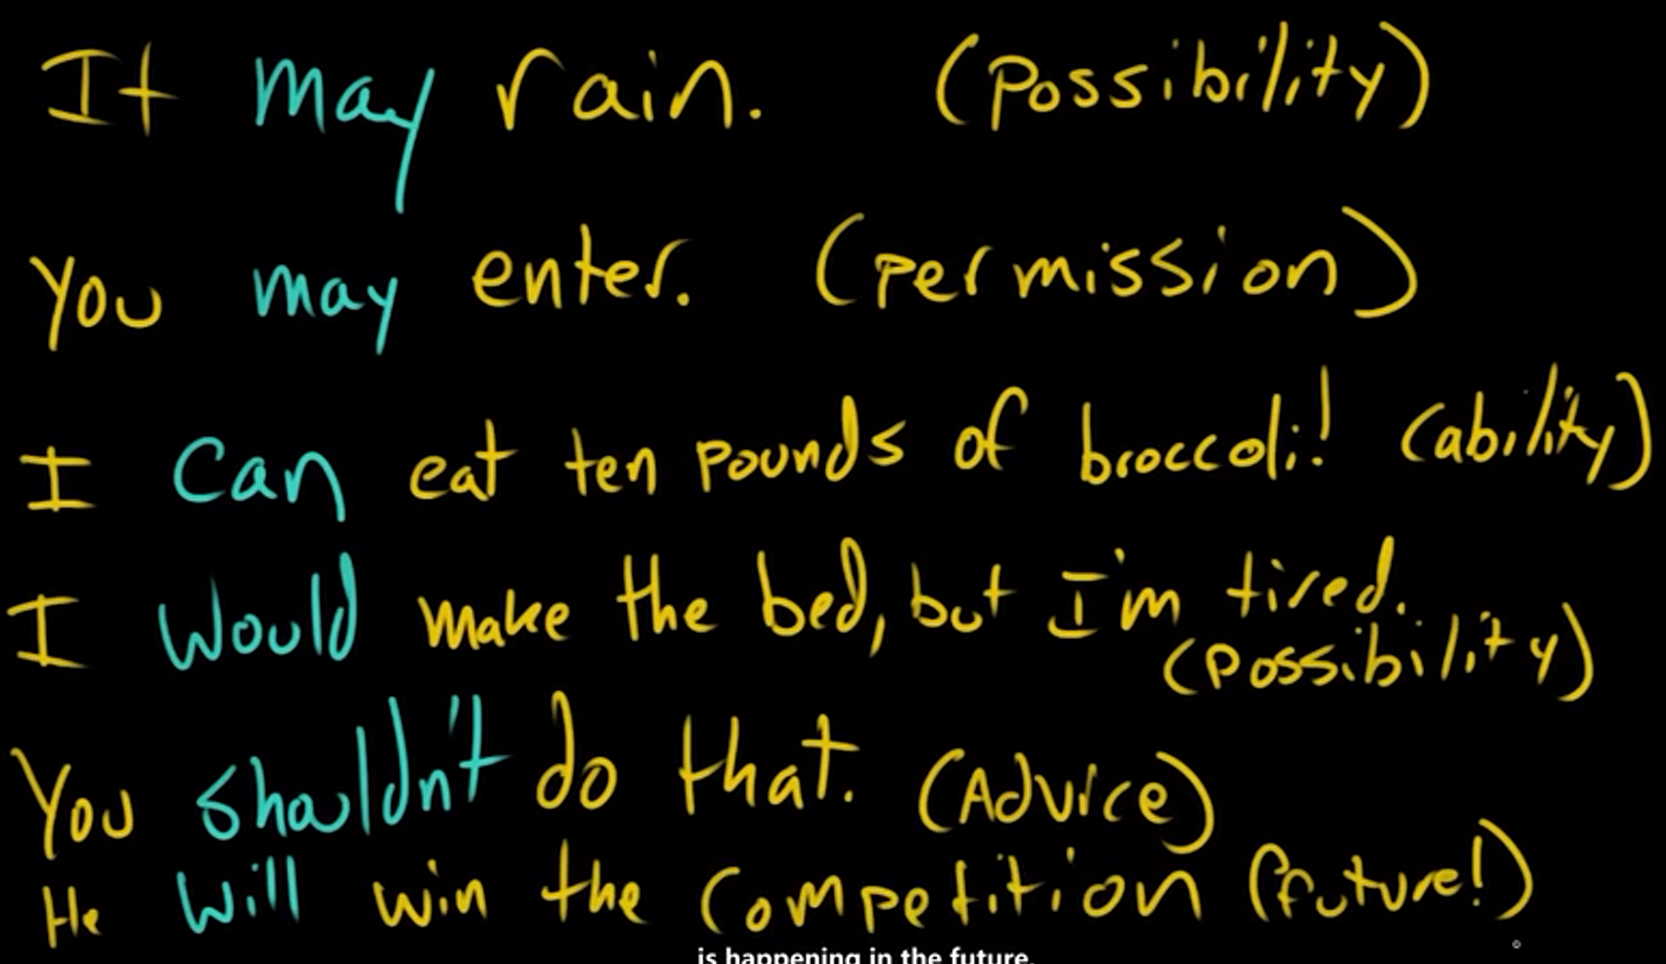 It may rain. (possibility)
You may enter. (permission)
I can eat ten pounds of broccoli! (ability)
I would make the bed, but I'm tired.
(possibility)
You shouldn't do that. (Advice)
He will win the competition (future!)
is happening in the future.